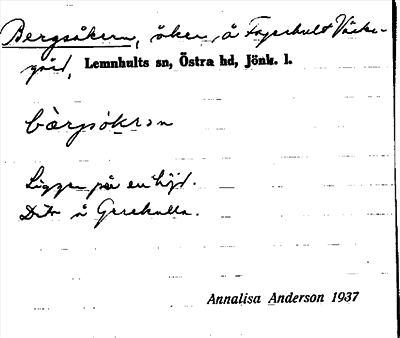 Bergsåkern, åker å Fagerhult Väster-
gård, Lemnhults sn, Östra hd, Jönk. l.
bærjsåkrən
Ligger på en höjd.
Dito å Grerhulla.
Annalisa Anderson 1937